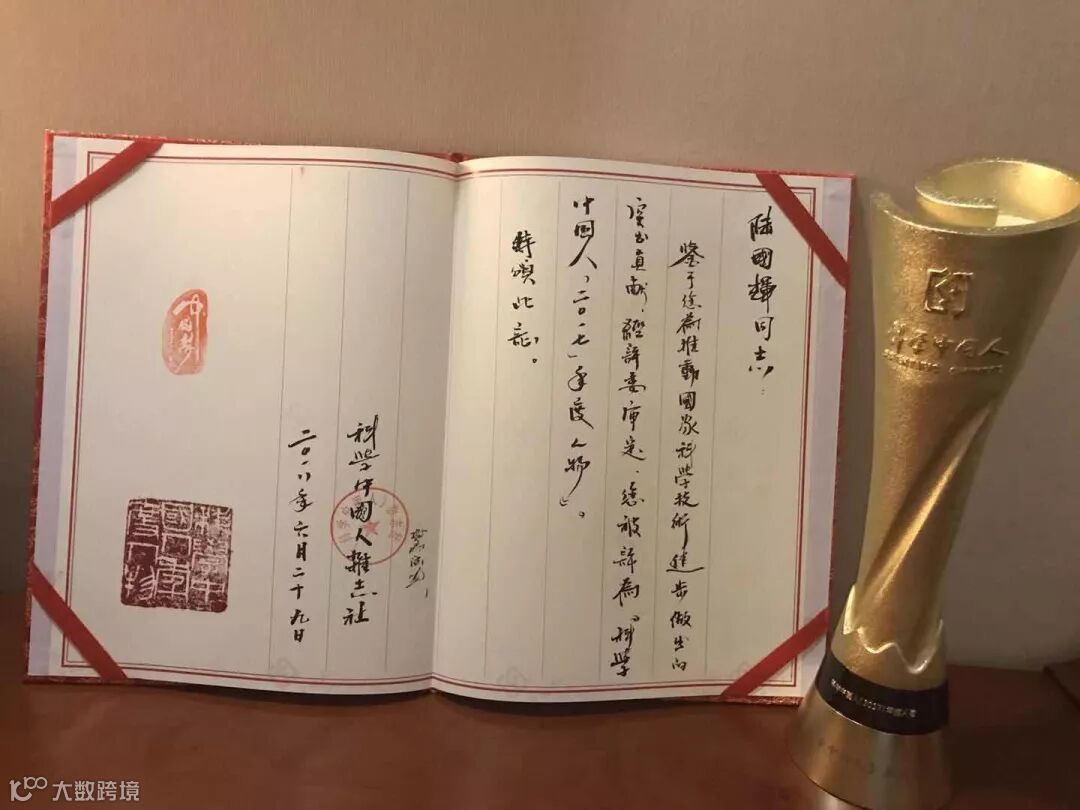 陆國輝同志：
鉴于您為推動國家科學技術進步做出的
突出貢献，經評委審定，您被評為《科學
中國人（二〇一七）年度人物》。
特頒此証。
科學中國人雜志社
二〇一八年六月二十九日
中国梦
科学中国人
SCIENTIFIC CHINESE
大数跨境